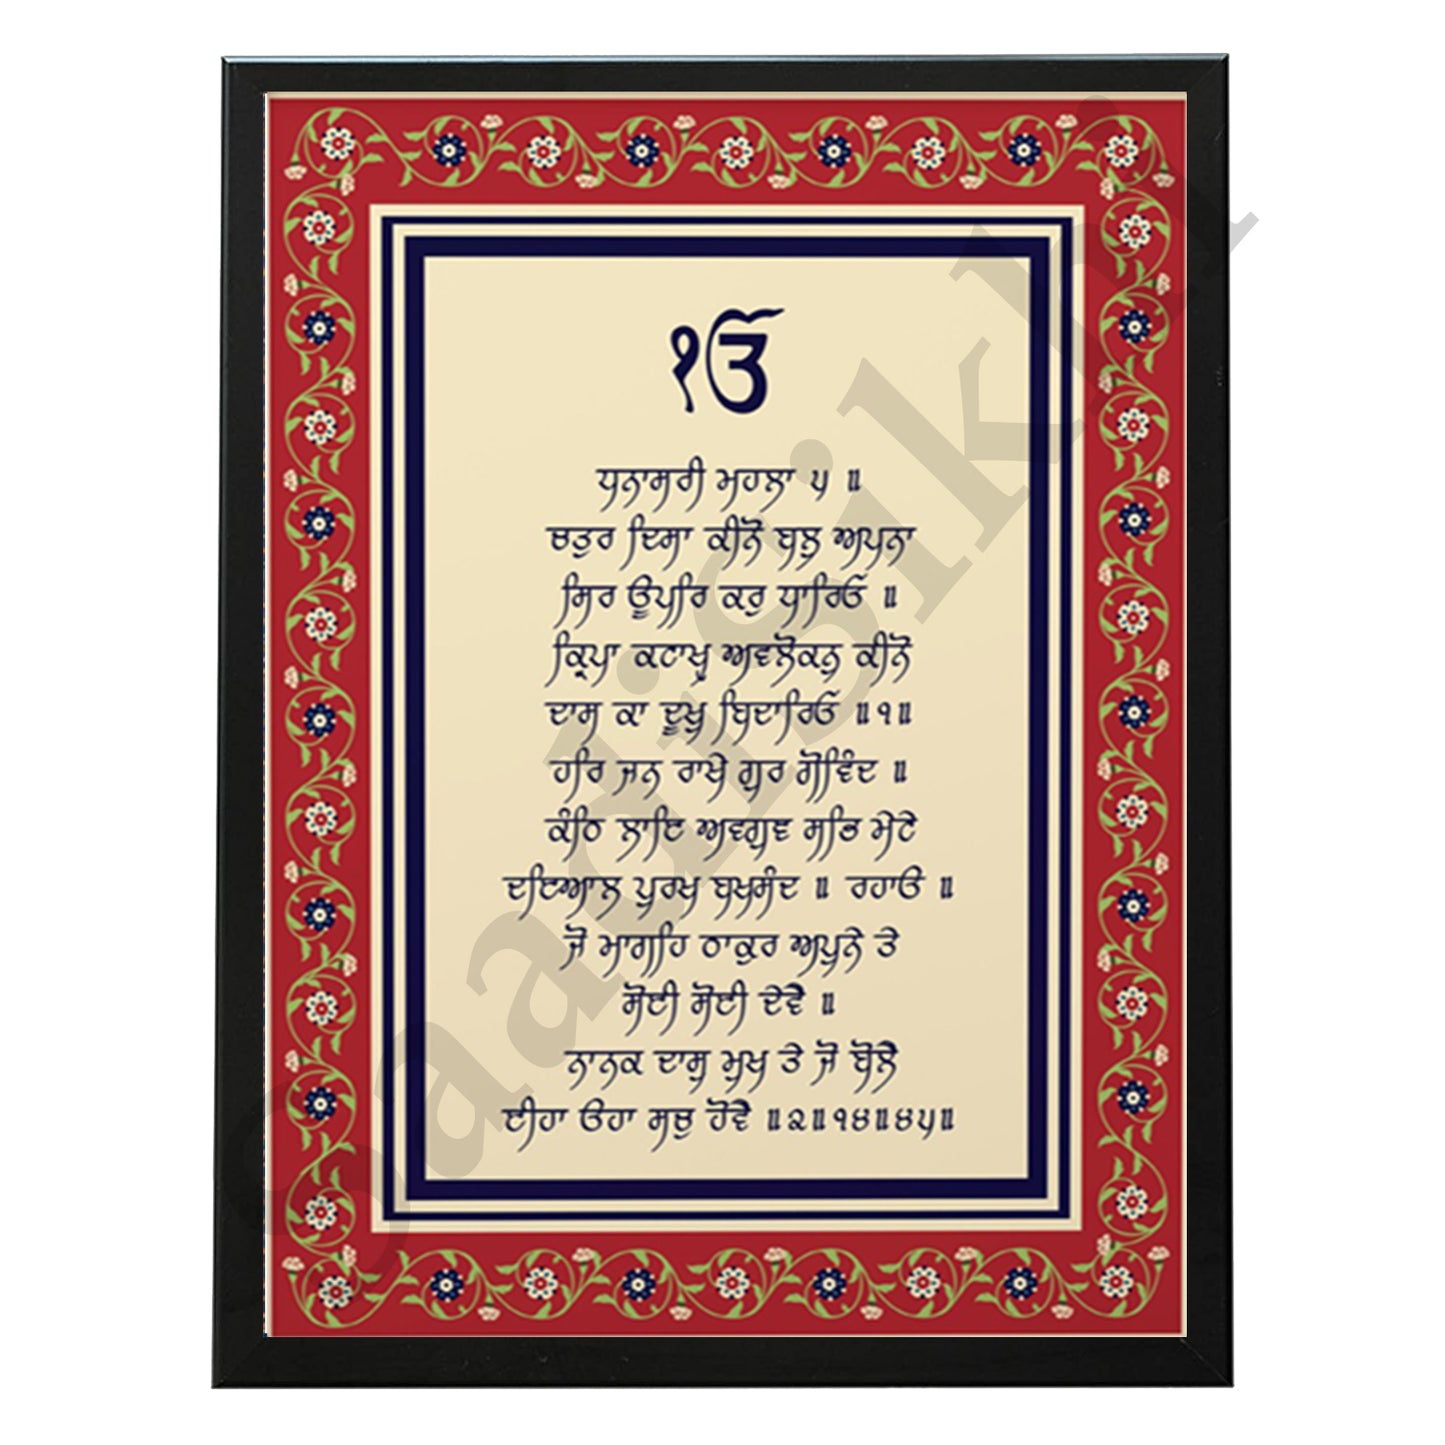 ੴ
ਧਨਾਸਰੀ ਮਹਲਾ ੫ ॥
ਚਤੁਰ ਦਿਸਾ ਕੀਨੋ ਬਲੁ ਅਪਨਾ
ਸਿਰ ਊਪਰਿ ਕਰੁ ਧਾਰਿਓ ॥
ਕ੍ਰਿਪਾ ਕਟਾਖੵ ਅਵਲੋਕਨੁ ਕੀਨੋ
ਦਾਸ ਕਾ ਦੂਖੁ ਬਿਦਾਰਿਓ ॥੧॥
ਹਰਿ ਜਨ ਰਾਖੇ ਗੁਰ ਗੋਵਿੰਦ ॥
ਕੰਠਿ ਲਾਇ ਅਵਗੁਣ ਸਭਿ ਮੇਟੇ
ਦਇਆਲ ਪੁਰਖ ਬਖਸੰਦ ॥ ਰਹਾਓ ॥
ਜੋ ਮਾਗਹਿ ਠਾਕੁਰ ਅਪੁਨੇ ਤੇ
ਸੋਈ ਸੋਈ ਦੇਵੈ ॥
ਨਾਨਕ ਦਾਸੁ ਮੁਖ ਤੇ ਜੋ ਬੋਲੈ
ਈਹਾ ਓਹਾ ਸਚੁ ਹੋਵੈ ॥੨॥੧੪॥੪੫॥
SaadiSikhi